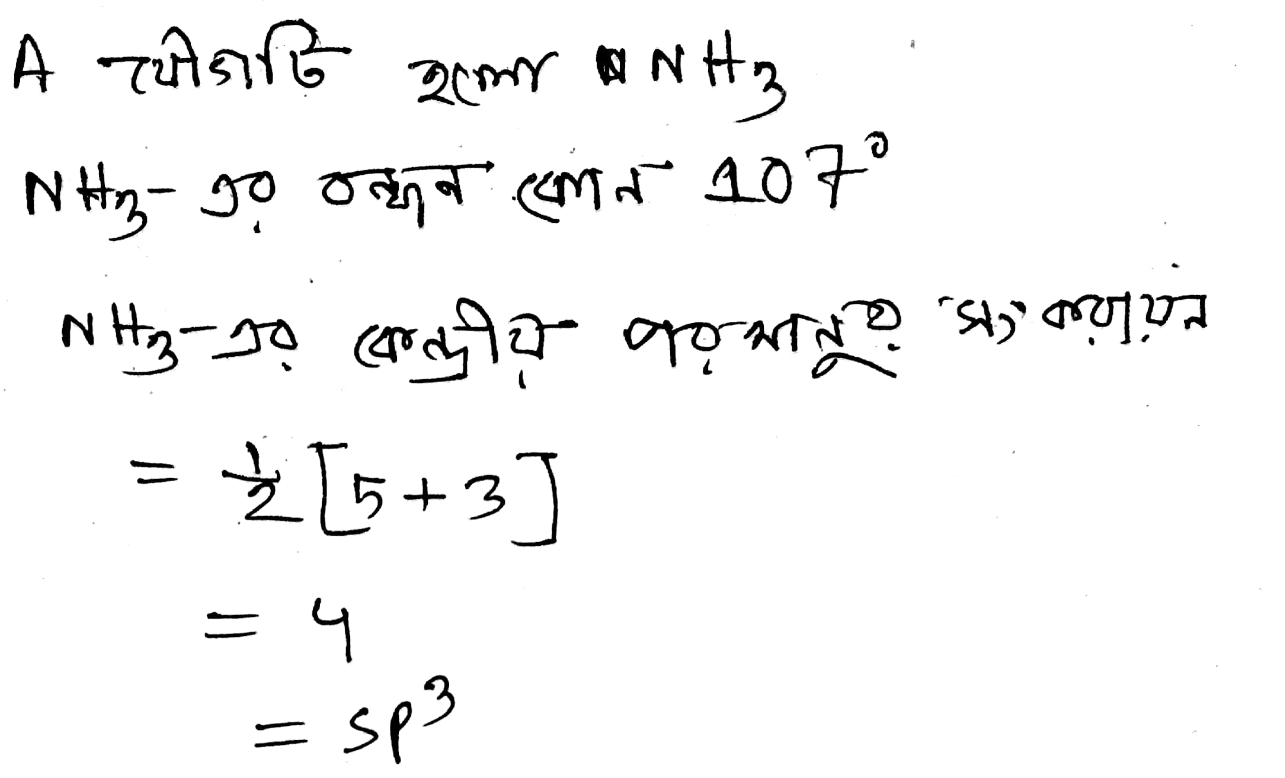 A যৌগটি হলো NH₃
NH₃-এর বন্ধন কোন 107°
NH₃-এর কেন্দ্রীয় পরমানুর সংকরায়ন
= ½ [5+3]
= 4
= sp³